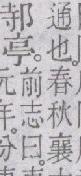 通也。春秋襄
邿亭。
前志曰。
元年。分